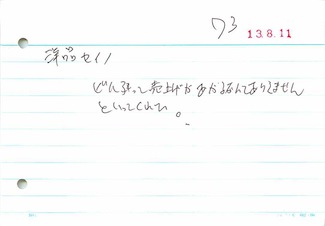 73
13.8.11
洋品セイノ
どん張って売上げがあがるなんてありません
といってくれた。